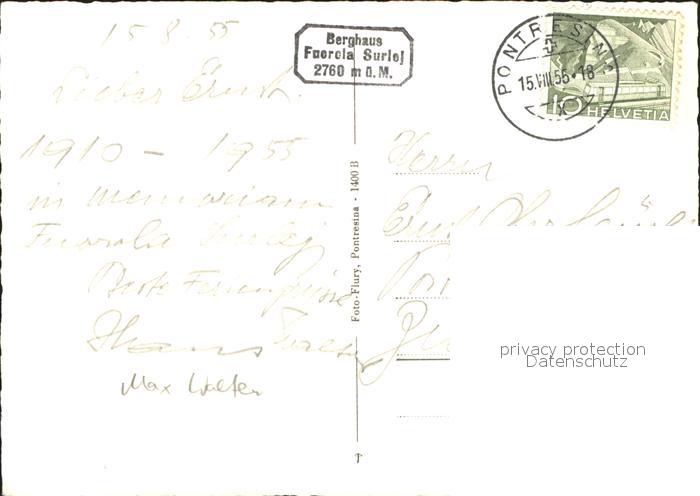 15.8.55
Lieber Ernst
1910 - 1955
in memoriam
Fuorcla Surlej
Beste Feriengrüsse
Hans
Max Walter
Berghaus
Fuorcla Surlej
2760 m ü. M.
Foto-Flury, Pontresina - 1400 B
PONTRESINA
15.VIII.55-18
10 HELVETIA
Herrn
Ernst
privacy protection
Datenschutz